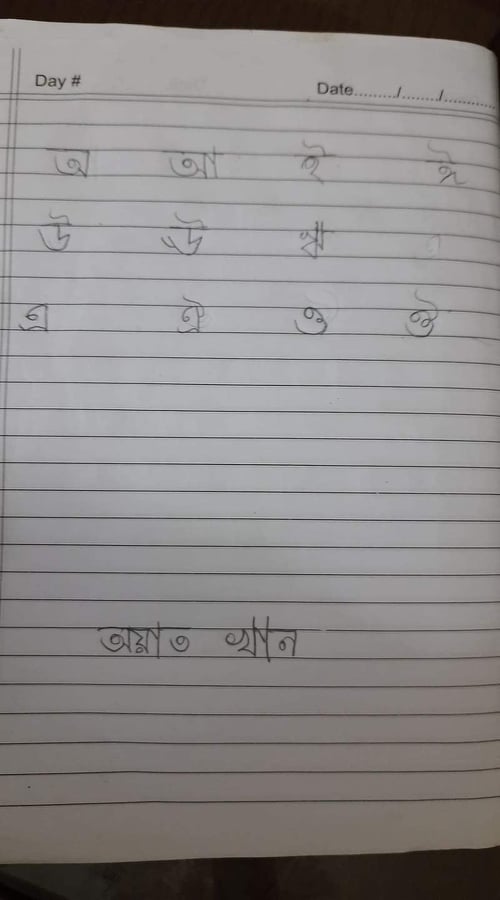 Day # Date........./......./............
অ আ ই ঈ
উ ঊ ঋ
এ ঐ ও ঔ
অয়াত খান